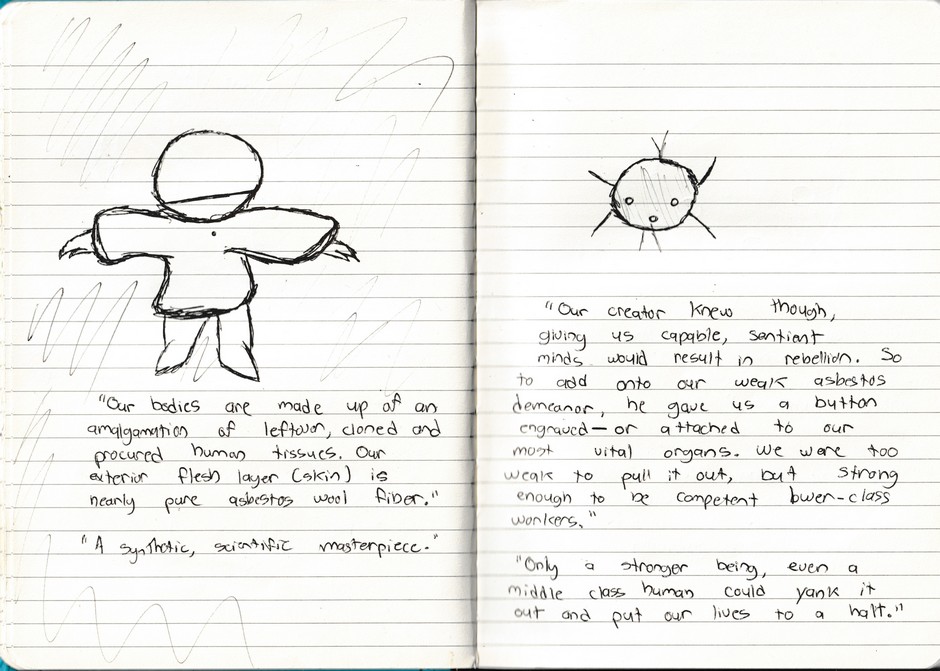 "Our bodies are made up of an
amalgamation of leftover, cloned and
procured human tissues. Our
exterior flesh layer (skin) is
nearly pure asbestos wool fiber."
"A synthetic, scientific masterpiece."
"Our creator knew though,
giving us capable, sentient
minds would result in rebellion. So
to add onto our weak asbestos
demeanor, he gave us a button
engraved—or attached to our
most vital organs. We were too
weak to pull it out, but strong
enough to be competent lower-class
workers."
"Only a stronger being, even a
middle class human could yank it
out and put our lives to a halt."